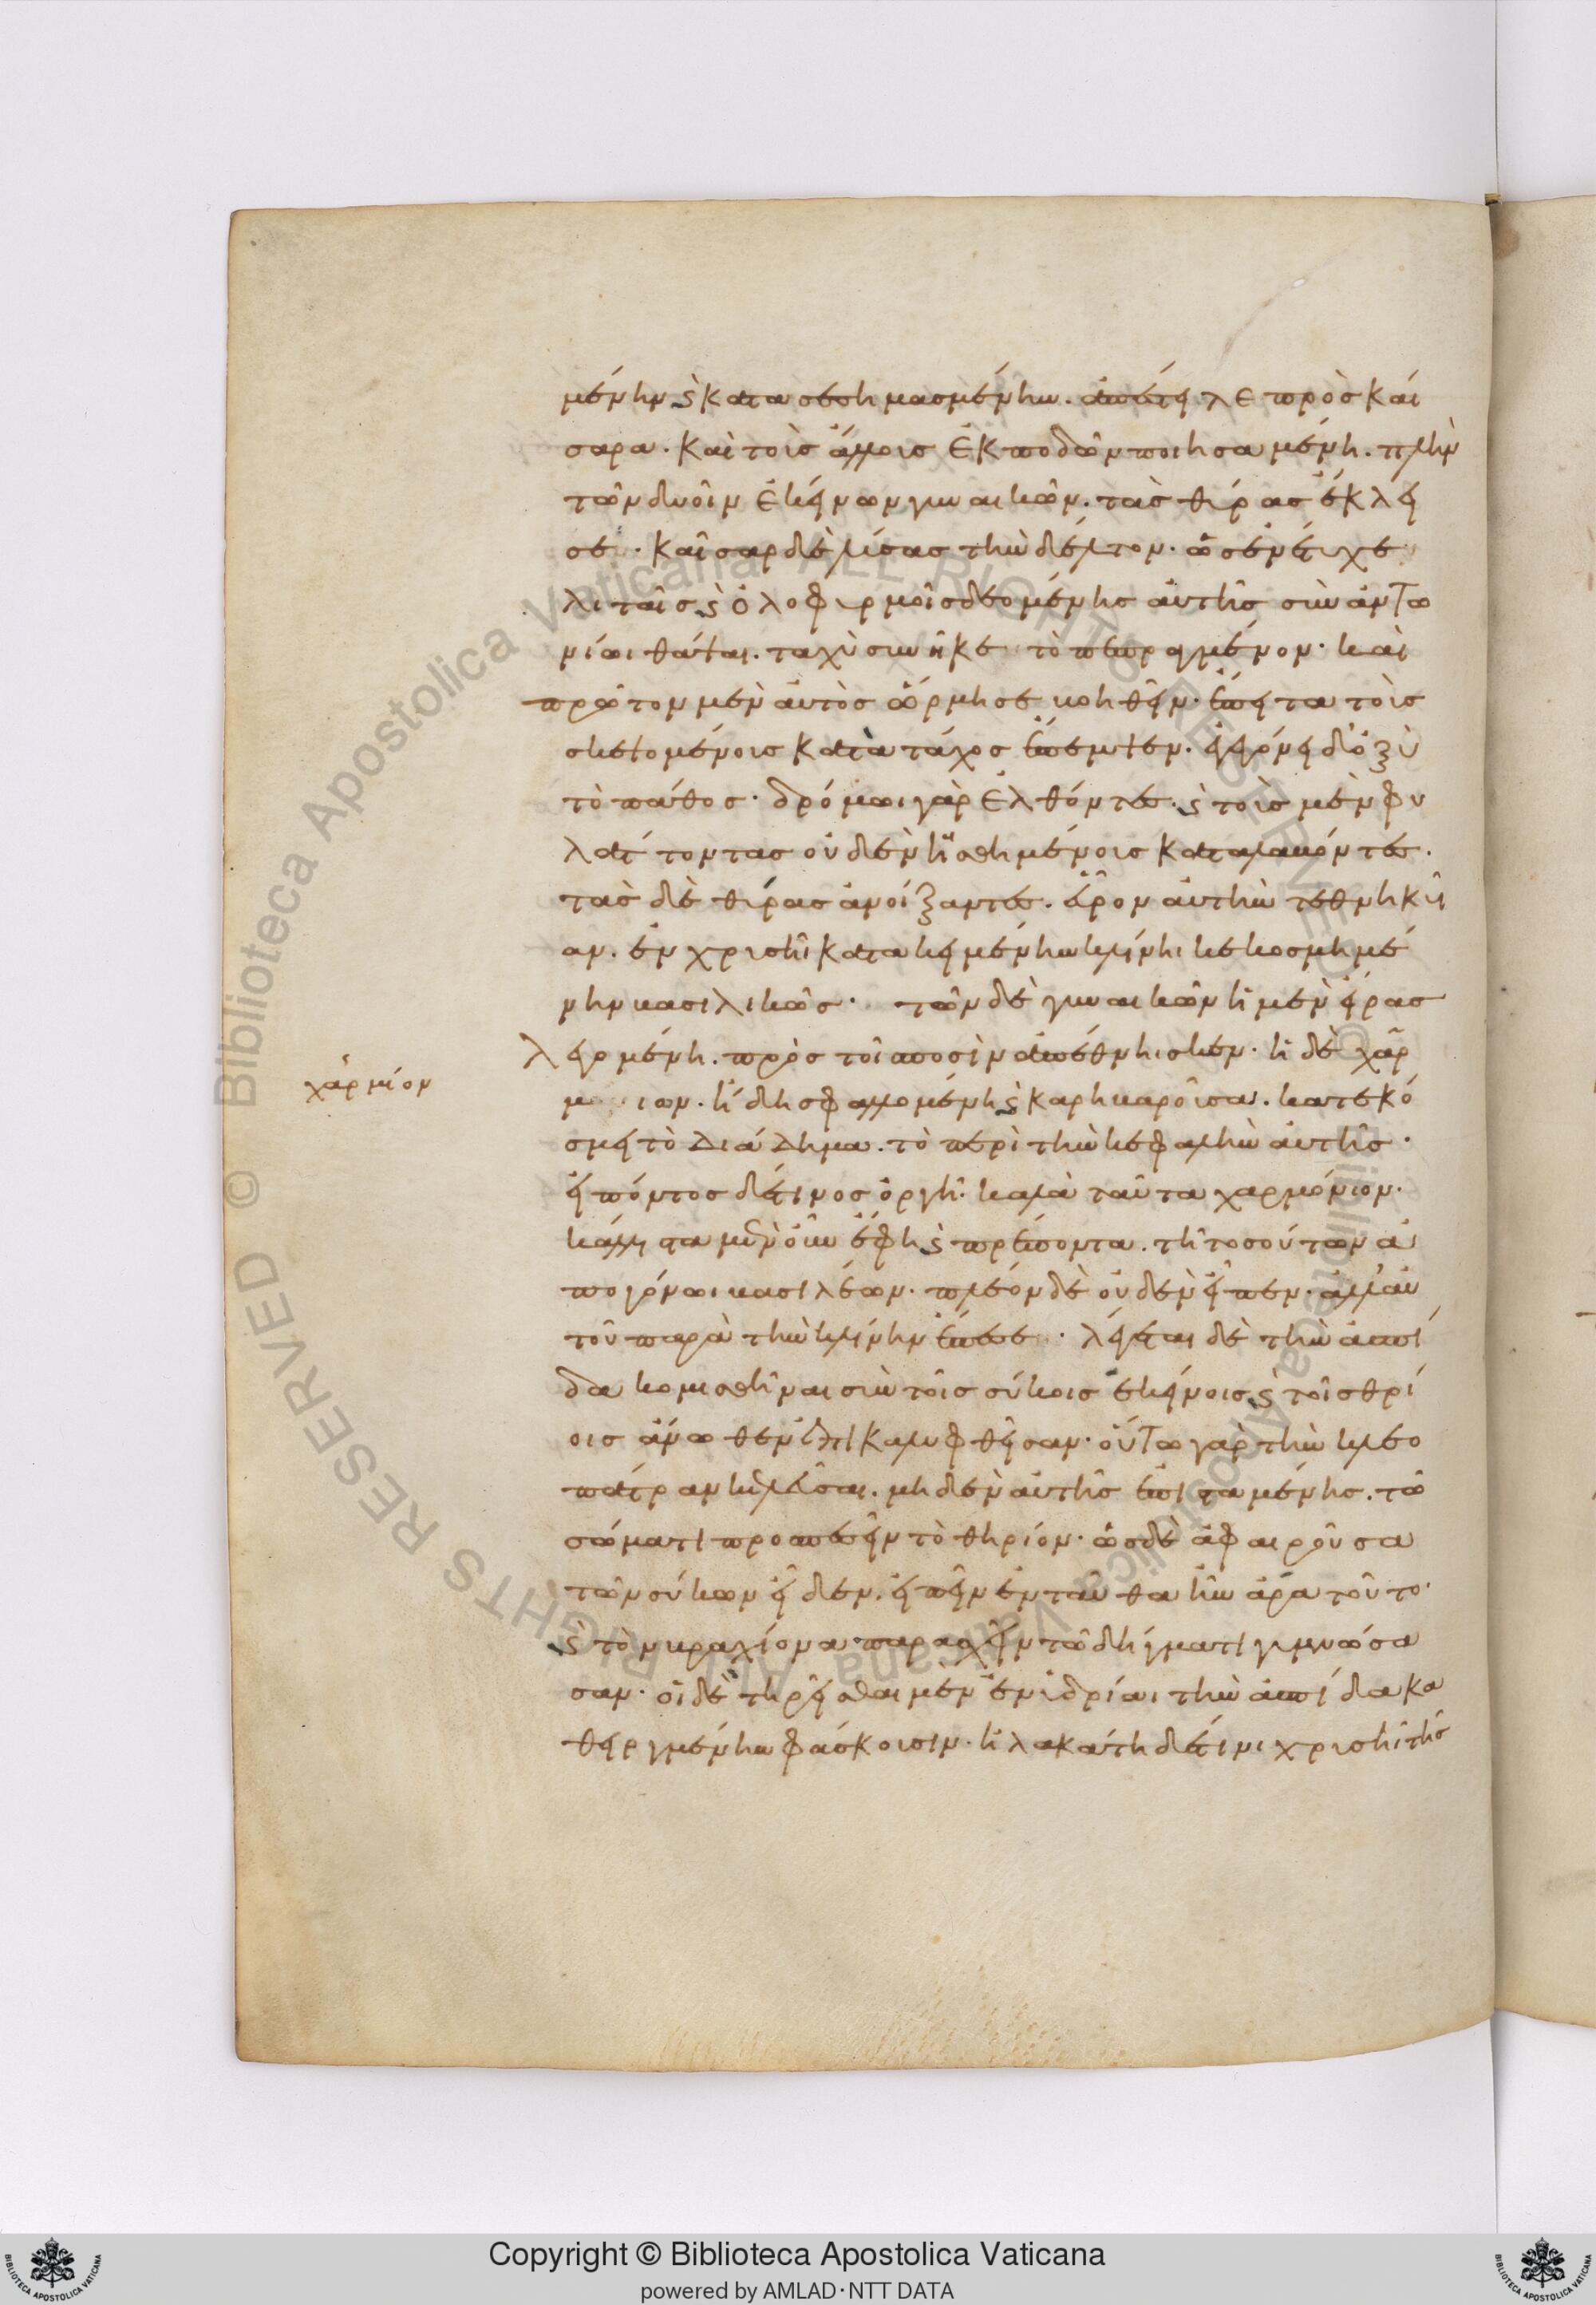 μένην καὶ κατασεσημασμένην. ἀπέστειλε πρὸς καί
σαρα. καὶ τοὺς ἄλλους ἐκποδὼν ποιησαμένη. πλὴν
τῶν δυοῖν ἐκείνων γυναικῶν. τὰς θύρας ἔκλει
σε. καῖσαρ δὲ λύσας τὴν δέλτον. ὡς ἐνέτυχε
λιταῖς καὶ ὀλοφυρμοῖς δεομένης αὐτῆς σὺν ἀντω
νίωι θάψαι. ταχὺ συνῆκε τὸ πεπραγμένον. καὶ
πρῶτον μὲν αὐτὸς ὥρμησε βοηθεῖν. ἔπειτα τοὺς
σκεψομένους κατὰ τάχος ἔπεμψεν. ἐγεγόνει δ' ὀξὺ
τὸ πάθος. δρόμωι γὰρ ἐλθόντες. καὶ τοὺς μὲν φυ
λάττοντας οὐδὲν ἠισθημένους καταλαβόντες.
τὰς δὲ θύρας ἀνοίξαντες. εὗρον αὐτὴν τεθνηκυῖ
αν. ἐν χρυσῆι κατακειμένην κλίνηι κεκοσμημέ
νην βασιλικῶς. τῶν δὲ γυναικῶν ἡ μὲν εἰρας
λειρμένη. πρὸς τοῖς ποσὶν ἀπέθνηισκεν. ἡ δὲ χάρ
μιον. ἤδη σφαλλομένη καὶ καρηβαροῦσα. κατεκό
σμει τὸ διάδημα. τὸ περὶ τὴν κεφαλὴν αὐτῆς.
εἰπόντος δέ τινος ὀργῆι. καλὰ ταῦτα χαρμόνιον.
κάλλιστα μὲν οὖν ἔφη καὶ πρέποντα. τῆι τοσούτων ἀ
πογόνωι βασιλέων. πλέον δὲ οὐδὲν εἶπεν. ἀλλ' αὐ
τοῦ παρὰ τὴν κλίνην ἔπεσε. λέγεται δὲ τὴν ἀσπί
δα κομισθῆναι σὺν τοῖς σύκοις ἐκείνοις καὶ τοῖς θρί
οις ἄνωθεν ἐπικαλυφθεῖσαν. οὕτω γὰρ τὴν κλεο
πάτραν κελεῦσαι. μηδὲν αὐτῆς ἐπισταμένης. τῶ
σώματι προσπεσεῖν τὸ θηρίον. ὡς δὲ ἀφαιροῦσα
τῶν σύκων εἶδεν. εἰπεῖν ἐνταῦθα ἦν ἄρα τοῦτο.
καὶ τὸν βραχίονα παρασχεῖν τῶ δήγματι γυμνώσα
σαν. οἱ δὲ τηρεῖσθαι μὲν ἐν ὑδρίαι τὴν ἀσπίδα κα
θειργμένην φάσκουσιν. ἠλακάτηι δέ τινι χρυσῆι τῆς
χάρμιον